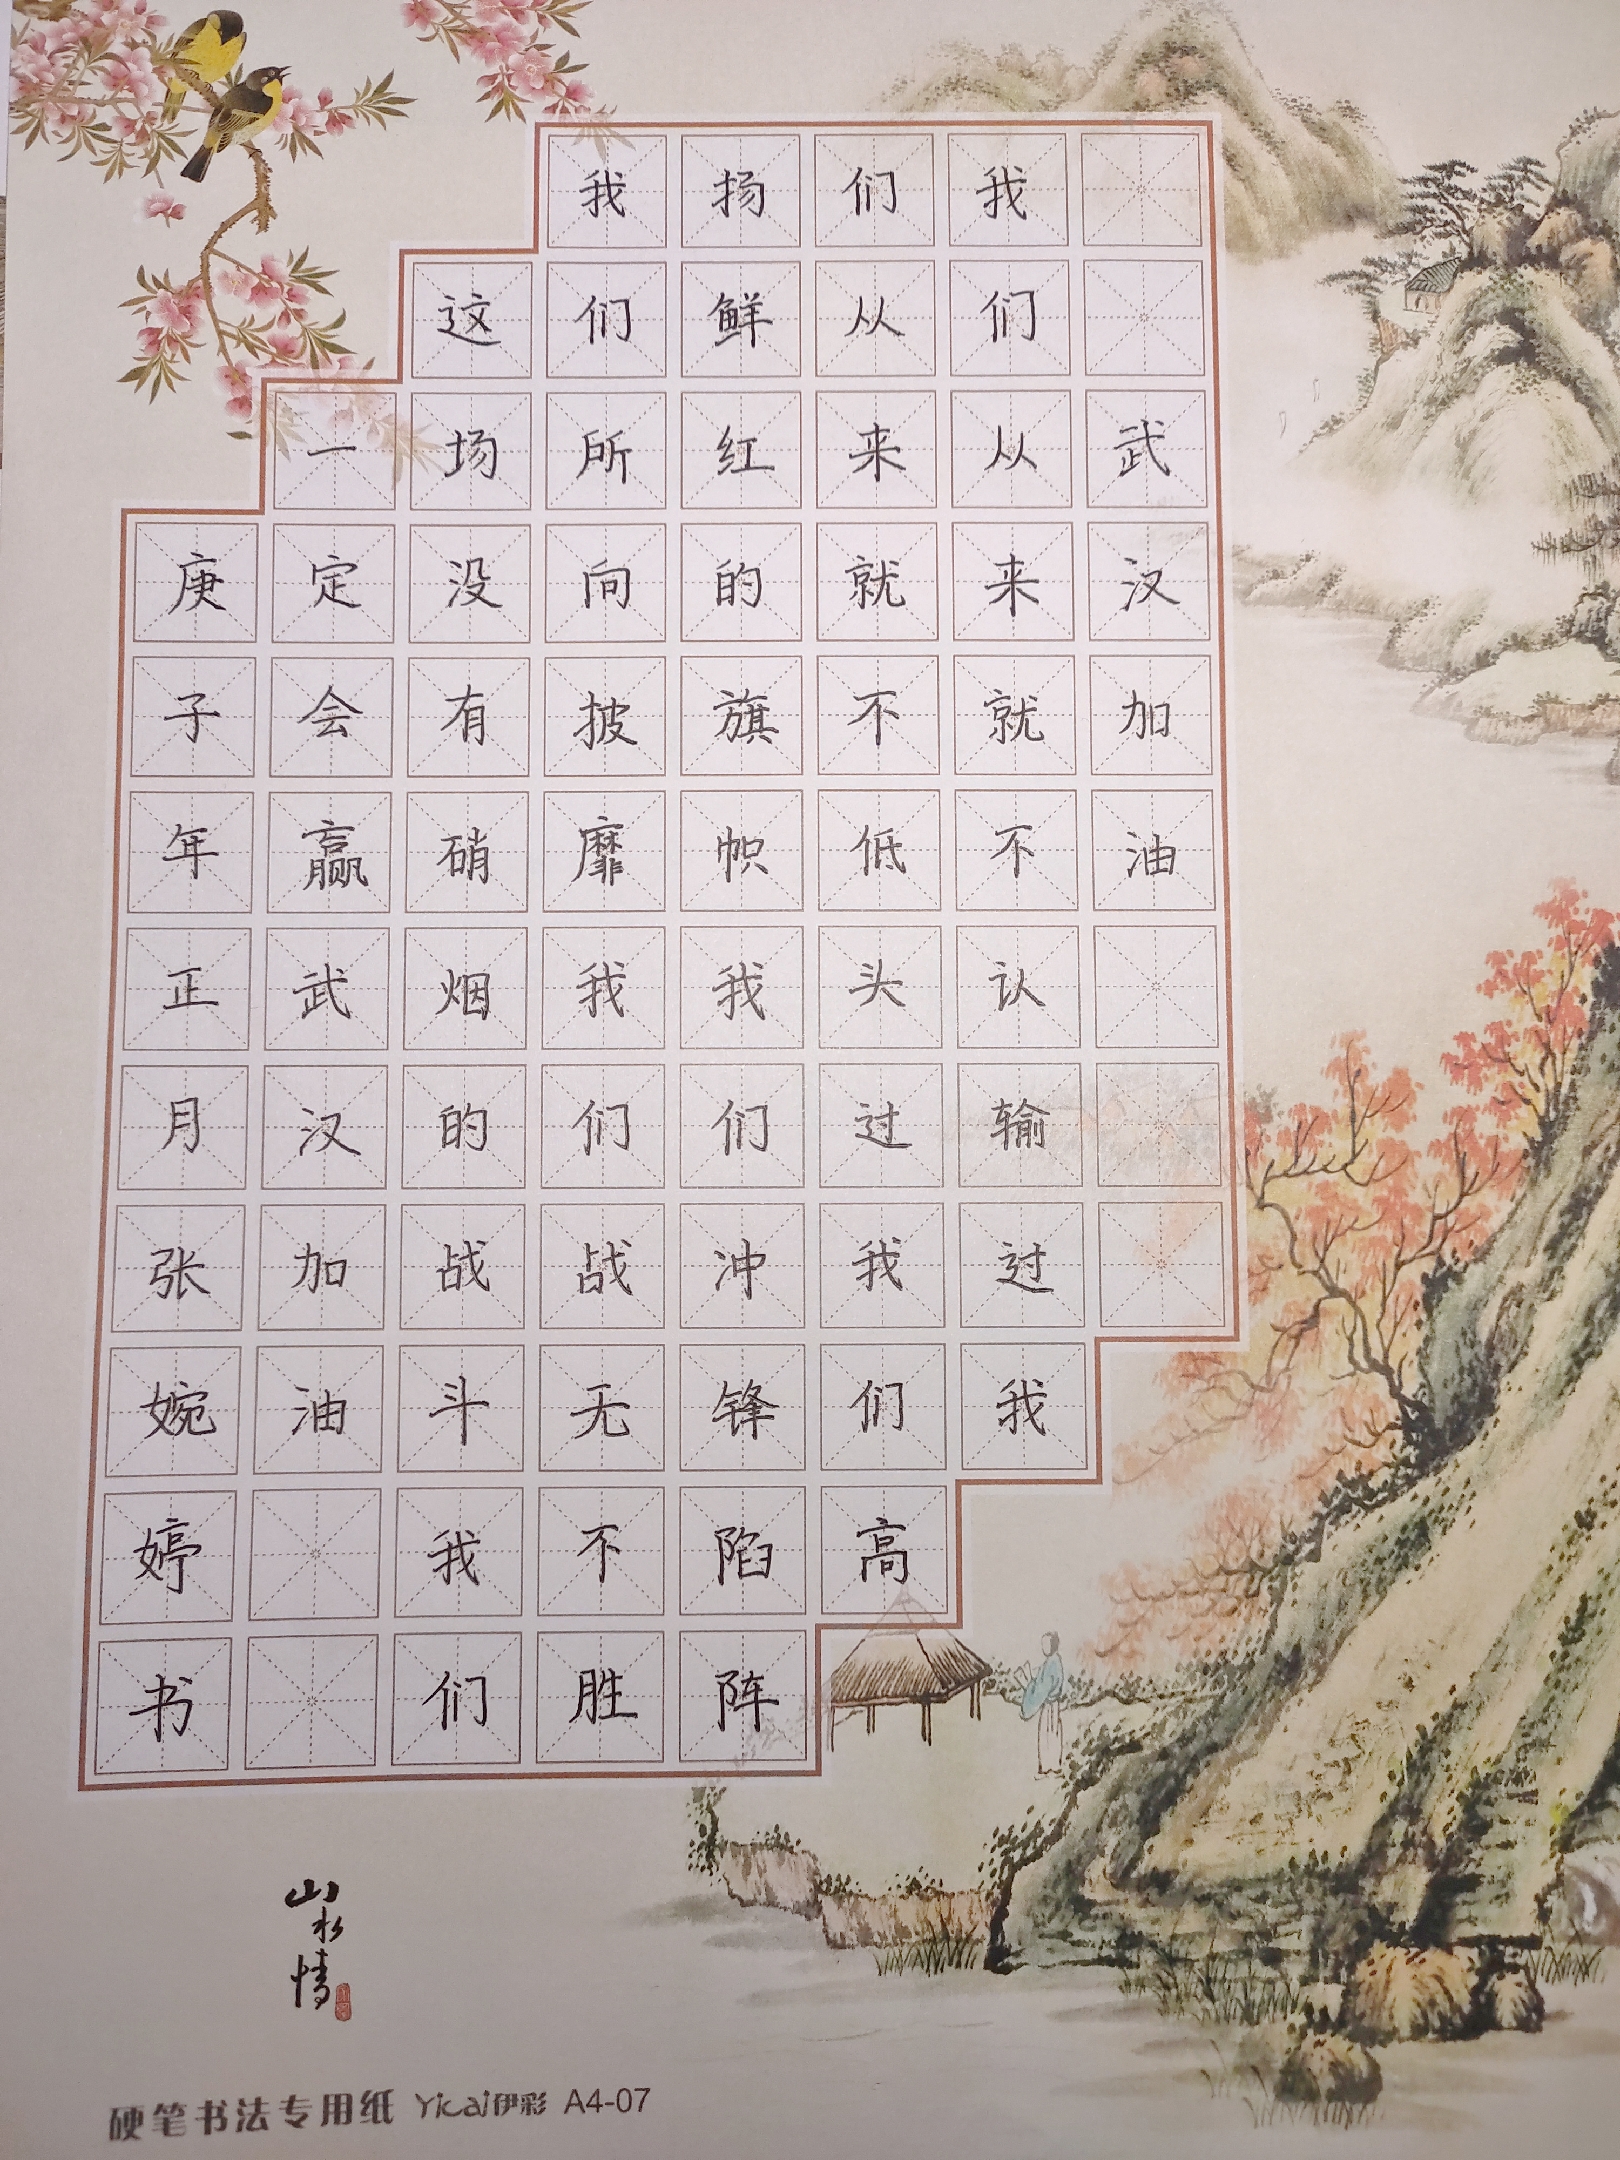 武汉加油
我们从来就不认输过我
们从来就不低头过我们高
扬鲜红的旗帜我们冲锋陷阵
我们所向披靡我们战无不胜
这场没有硝烟的战斗我们
一定会赢武汉加油
庚子年正月张婉婷书
山水情
硬笔书法专用纸 Yicai伊彩 A4-07